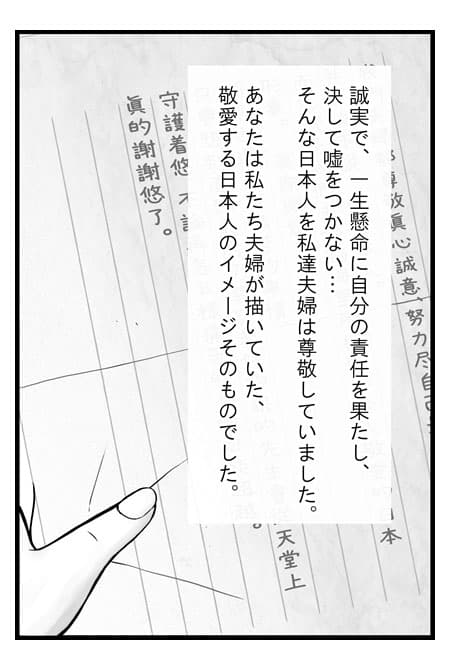 誠実で、一生懸命に自分の責任を果たし、
決して嘘をつかない…
そんな日本人を私達夫婦は尊敬していました。
あなたは私たち夫婦が描いていた、
敬愛する日本人のイメージそのものでした。
尊敬真心誠意、努力尽自己
日本
天堂上
守護着您
真的謝謝您了。